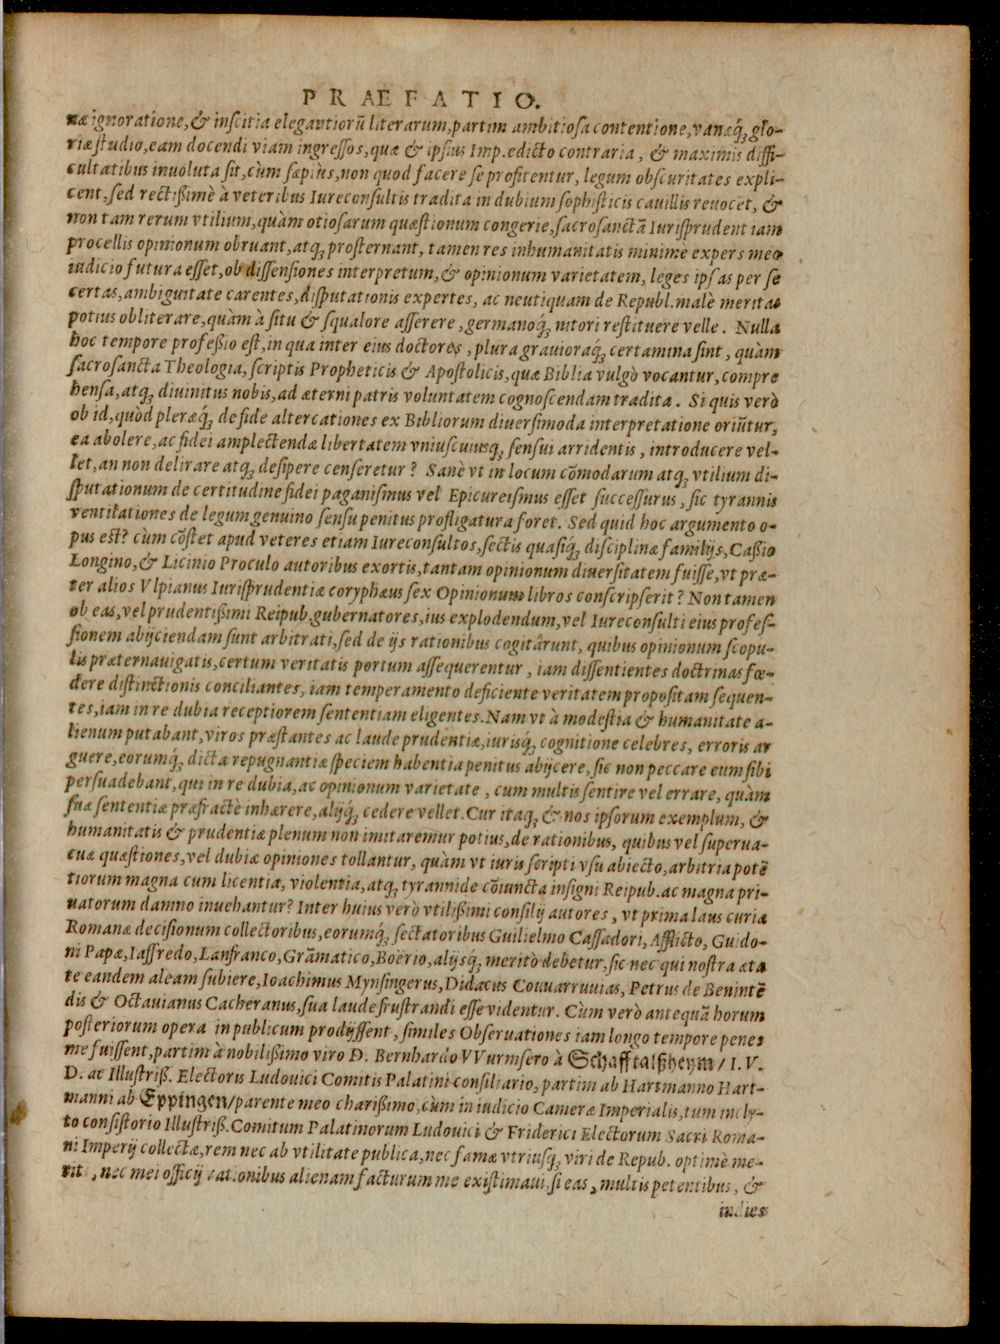 PRÆFATIO.
næ ignoratione, & inscitia elegantiorũ literarum, partim ambitiosa contentione, vanæq́ꝫ glo-
riæ studio, eam docendi viam ingressos, quæ & ipsius Imp. edicto contraria, & maximis diffi-
cultatibus inuoluta sit, cùm sæpiùs, non quod facere se profitentur, legum obscuritates expli-
cent, sed rectißimè à veteribus Iureconsultis tradita in dubium sophisticis cauillis reuocet, &
non tam rerum vtilium, quàm otiosarum quæstionum congerie, sacrosanctã Iurisprudentiam
procellis opinionum obruant, atqꝫ prosternant, tamen res inhumanitatis minimè expers meo
iudicio futura esset, ob dissensiones interpretum, & opinionum varietatem, leges ipsas per se
certas, ambiguitate carentes, disputationis expertes, ac neutiquam de Republ. malè meritas
potius obliterare, quàm à situ & squalore asserere, germanoq́ꝫ nitori restituere velle. Nulla
hoc tempore profeßio est, in qua inter eius doctores, plura grauioraq́ꝫ certamina sint, quàm
sacrosancta Theologia, scriptis Propheticis & Apostolicis, quæ Biblia vulgò vocantur, compre
hensa, atqꝫ diuinitus nobis, ad æterni patris voluntatem cognoscendam tradita. Si quis verò
ob id, quòd pleræq́ꝫ de fide altercationes ex Bibliorum diuersimoda interpretatione oriũtur,
ea abolere, ac fidei amplectendæ libertatem vniuscuiusqꝫ sensui arridentis, introducere vel-
let, an non delirare atqꝫ desipere censeretur? Sanè vt in locum cõmodarum atqꝫ vtilium di-
sputationum de certitudine fidei paganismus vel Epicureismus esset successurus, sic tyrannis
ventilationes de legum genuino sensu penitus profligatura foret. Sed quid hoc argumento o-
pus est? cùm cõstet apud veteres etiam Iureconsultos, sectis quasiq́ꝫ disciplinæ familijs, Caßio
Longino, & Licinio Proculo autoribus exortis, tantam opinionum diuersitatem fuisse, vt præ-
ter alios Vlpianus Iurisprudentiæ coryphæus sex Opinionum libros conscripserit? Non tamen
ob eas, vel prudentißimi Reipub. gubernatores, ius explodendum, vel Iureconsulti eius profes-
sionem abijciendam sunt arbitrati, sed de ijs rationibus cogitârunt, quibus opinionum scopu-
lis præternauigatis, certum veritatis portum assequerentur, iam dissentientes doctrinas fœ-
dere distinctionis conciliantes, iam temperamento deficiente veritatem propositam sequen-
tes, iam in re dubia receptiorem sententiam eligentes. Nam vt à modestia & humanitate a-
lienum putabant, viros præstantes ac laude prudentiæ, iurisq́ꝫ cognitione celebres, erroris ar
guere, eorumq́ꝫ dicta repugnantiæ speciem habentia penitus abijcere, sic non peccare eum sibi
persuadebant, qui in re dubia, ac opinionum varietate, cum multis sentire vel errare, quàm
suæ sententiæ præfractè inhærere, alijq́ꝫ cedere vellet. Cur itaqꝫ & nos ipsorum exemplum, &
humanitatis & prudentiæ plenum non imitaremur potius, de rationibus, quibus vel superua-
cuæ quæstiones, vel dubiæ opiniones tollantur, quàm vt iuris scripti vsu abiecto, arbitria potẽ
tiorum magna cum licentia, violentia, atqꝫ tyrannide cõiuncta insigni Reipub. ac magna pri-
uatorum damno inuehantur? Inter huius verò vtilißimi consilij autores, vt prima laus curiæ
Romanæ decisionum collectoribus, eorumq́ꝫ sectatoribus Guilielmo Cassadori, Afflicto, Guido-
ni Papæ, Iaffredo, Lanfranco, Grãmatico, Boërio, alijsq́ꝫ meritò debetur, sic nec qui nostra æta
te eandem aleam subiere, Ioachimus Mynsingerus, Didacus Couuarruuias, Petrus de Benintẽ
dis & Octauianus Cacheranus, sua laude frustrandi esse videntur. Cùm verò antequã horum
posteriorum opera in publicum prodijssent, similes Obseruationes iam longo tempore penes
me fuissent, partim à nobilißimo viro D. Bernhardo VVurmsero à Schafftalßheym / I. V.
D. ac Illustriß. Electoris Ludouici Comitis Palatini consiliario, partim ab Hartmanno Hart-
manni ab Eppingen / parente meo charißimo, cùm in iudicio Cameræ Imperialis, tum incly-
to consistorio Illustriß. Comitum Palatinorum Ludouici & Friderici Electorum Sacri Roma-
ni Imperij collectæ, rem nec ab vtilitate publica, nec famæ vtriusqꝫ viri de Repub. optimè me-
riti, nec mei officij rationibus alienam facturum me existimaui, si eas, multis petentibus, &
indies